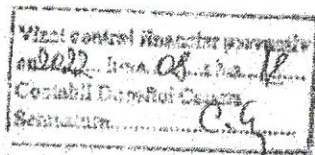 Vizat control financiar preventiv
an 2022 luna 08 ziua 18
Contabil
Semnatura C.G